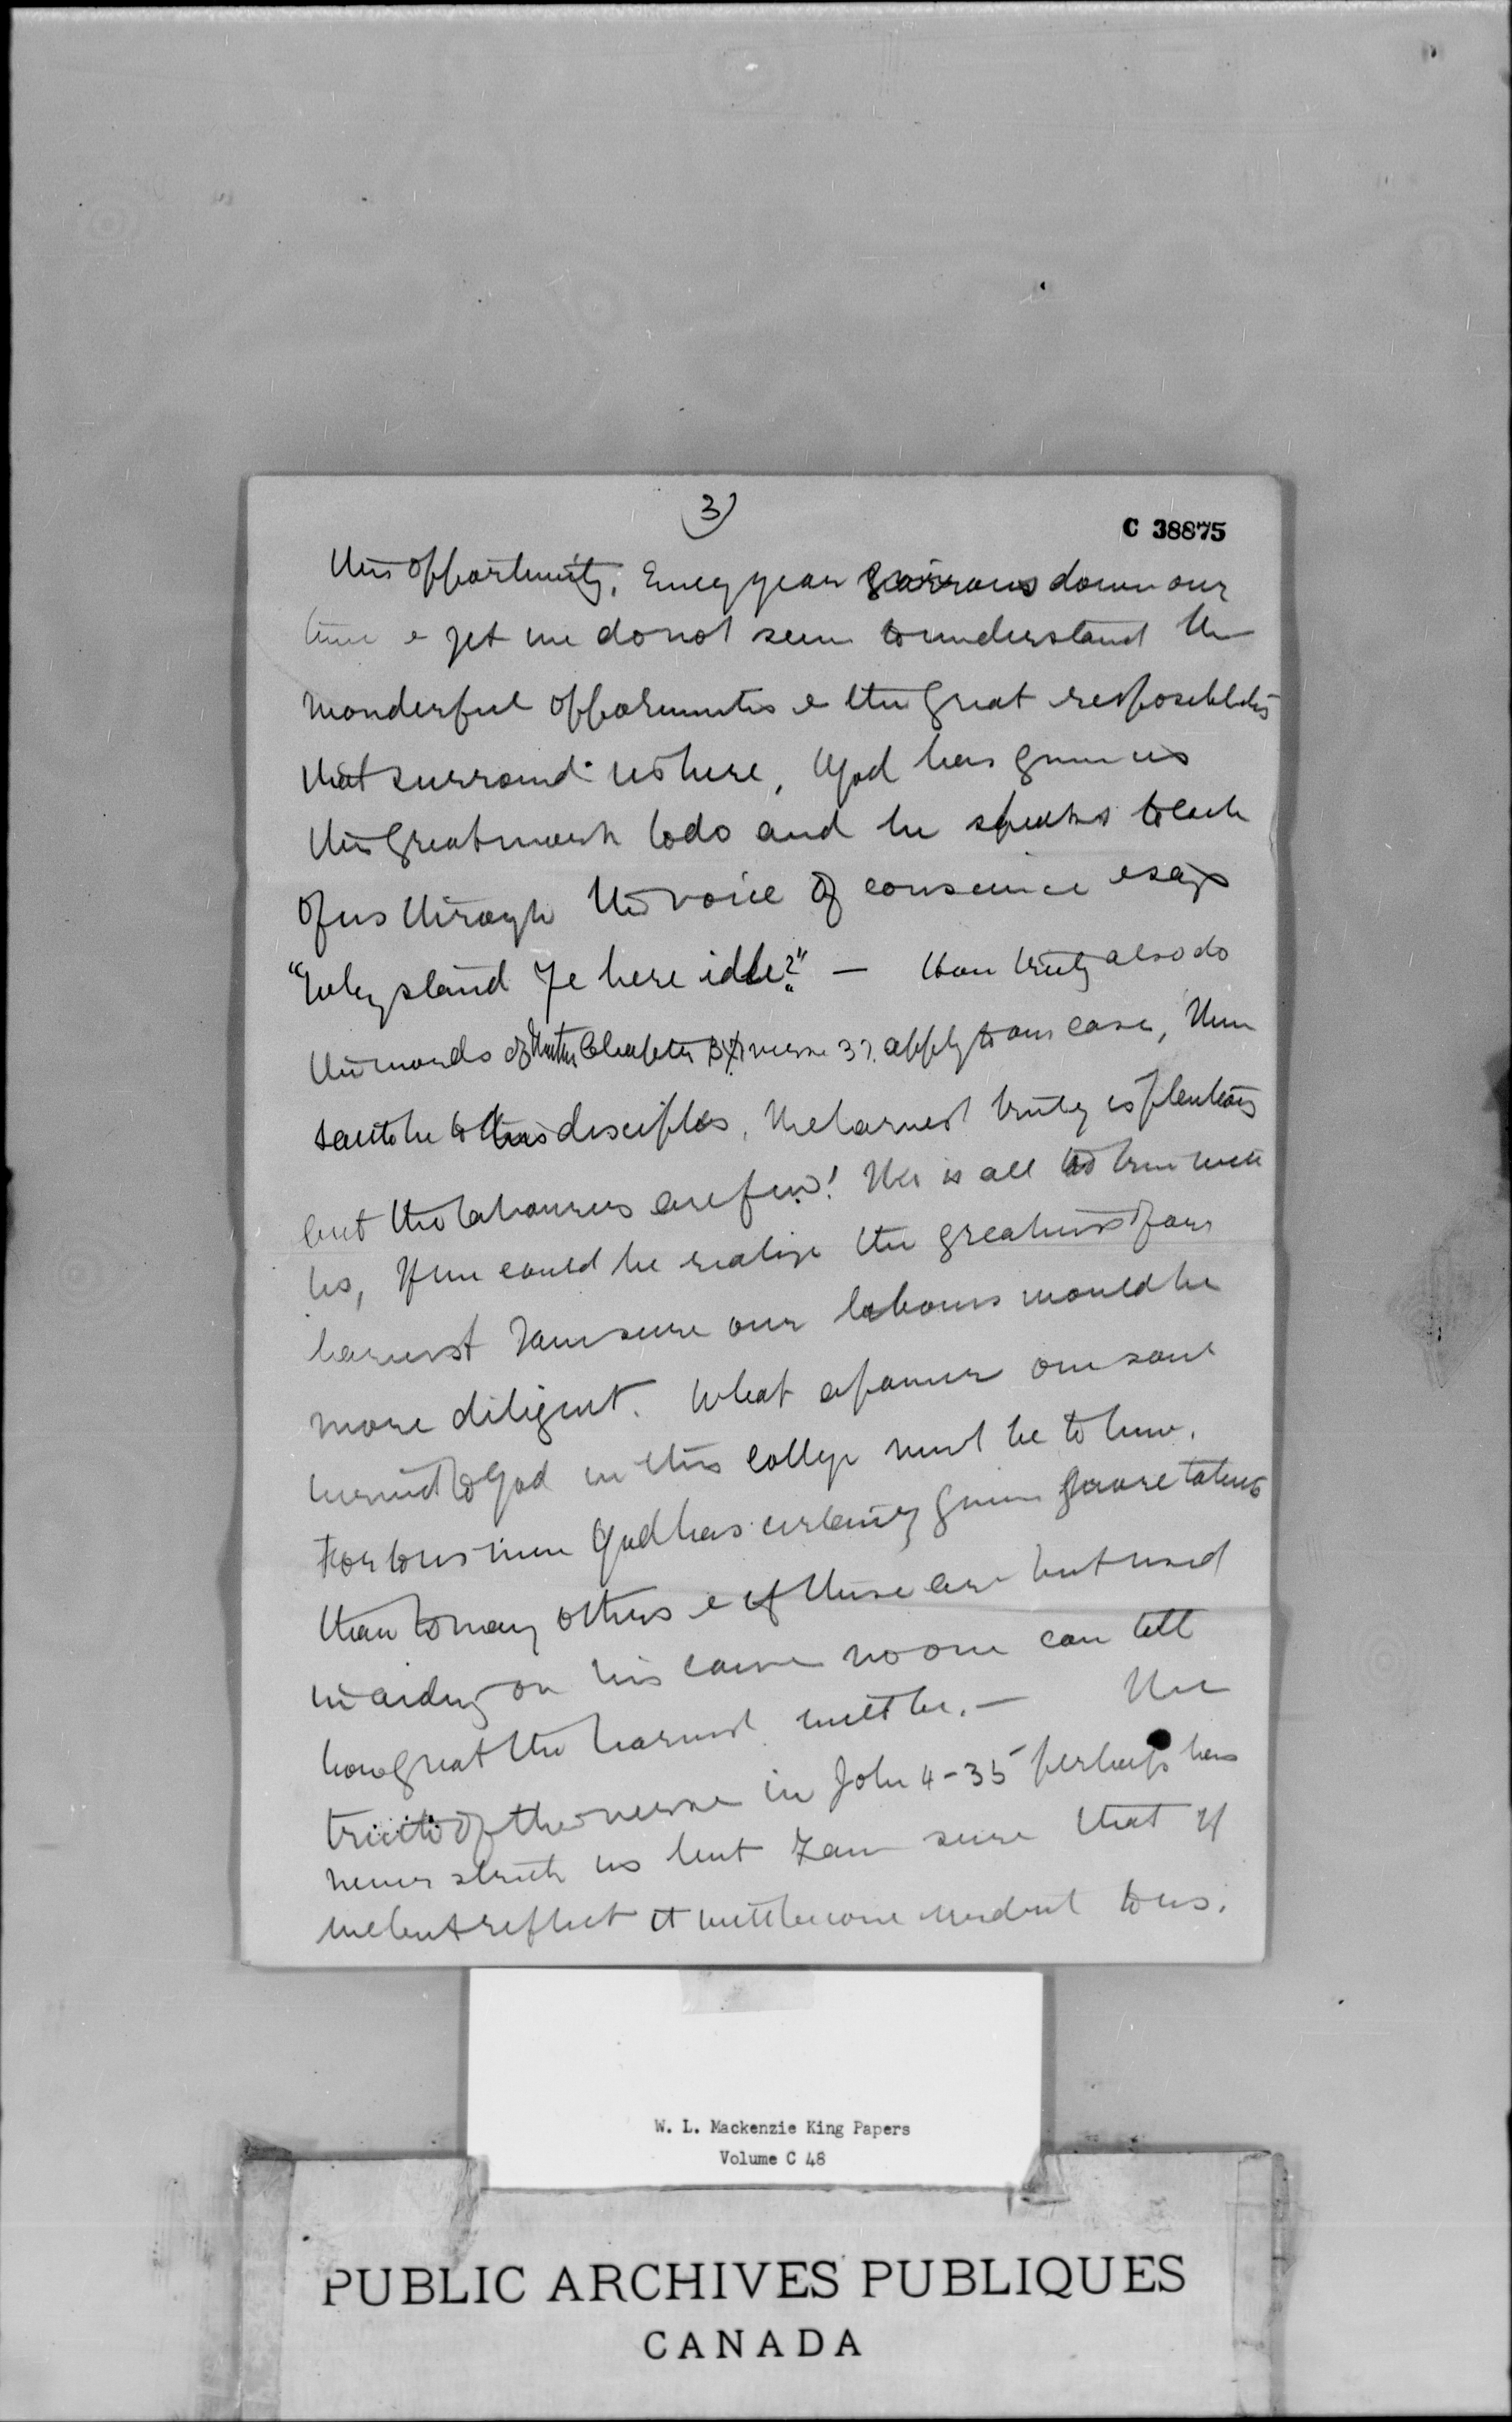 3)
C 38875
this opportunity. Every year narrows down our
time & yet we do not seem to understand the
wonderful opportunities & the great resposiblities
that surround us here, God has given us
this great work to do and he speaks to each
of us through the voice of conscience & says
"Why stand ye here idle?" — How truly also do
the words of Matthew Chapter IX verse 37 apply to our case, Then
saith he to his disciples, the harvest truly is plenteous
but the labourers are few! This is all too true with
us, If we could be realize the greatness of our
harvest I am sure our labours would be
more diligent. What a power one soul
turned to God in this college must be to him.
For to us men God has certainly given more talents
than to many others & if these are but used
in aiding on his cause no one can tell
how great the harvest will be. — The
truth of the verse in John 4-35 perhaps has
never struck us but I am sure that if
we but reflect it will become evident to us.
W. L. Mackenzie King Papers
Volume C 48
PUBLIC ARCHIVES PUBLIQUES
CANADA